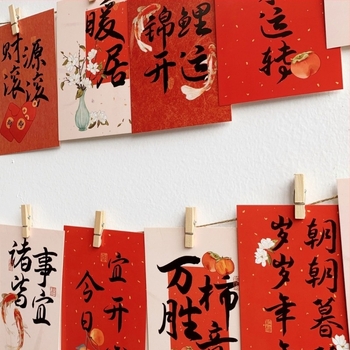 财源
滚滚
暖居
锦鲤
开运
运转
诸事
皆宜
宜开
今日
万柿
胜意
朝朝暮
岁岁年